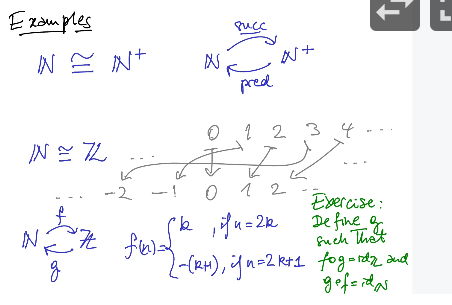 Examples
succ
ℕ ≅ ℕ⁺ ℕ ℕ⁺
pred
0 1 2 3 4 ...
ℕ ≅ ℤ ... ...
.... -2 -1 0 1 2 ...
f
ℕ ℤ
g
f(n) = { k, if n = 2k
-(k+1), if n = 2k+1
Exercise:
Define g
such that
f∘g = id_ℤ and
g∘f = id_ℕ